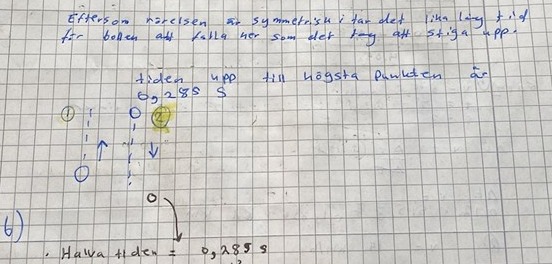 Eftersom rörelsen är symmetrisk i tar det lika lång tid
för bollen att falla ner som det tog att stiga upp.
tiden upp till högsta punkten är
0,285 s
① ②
6)
. Halva tiden = 0,285 s